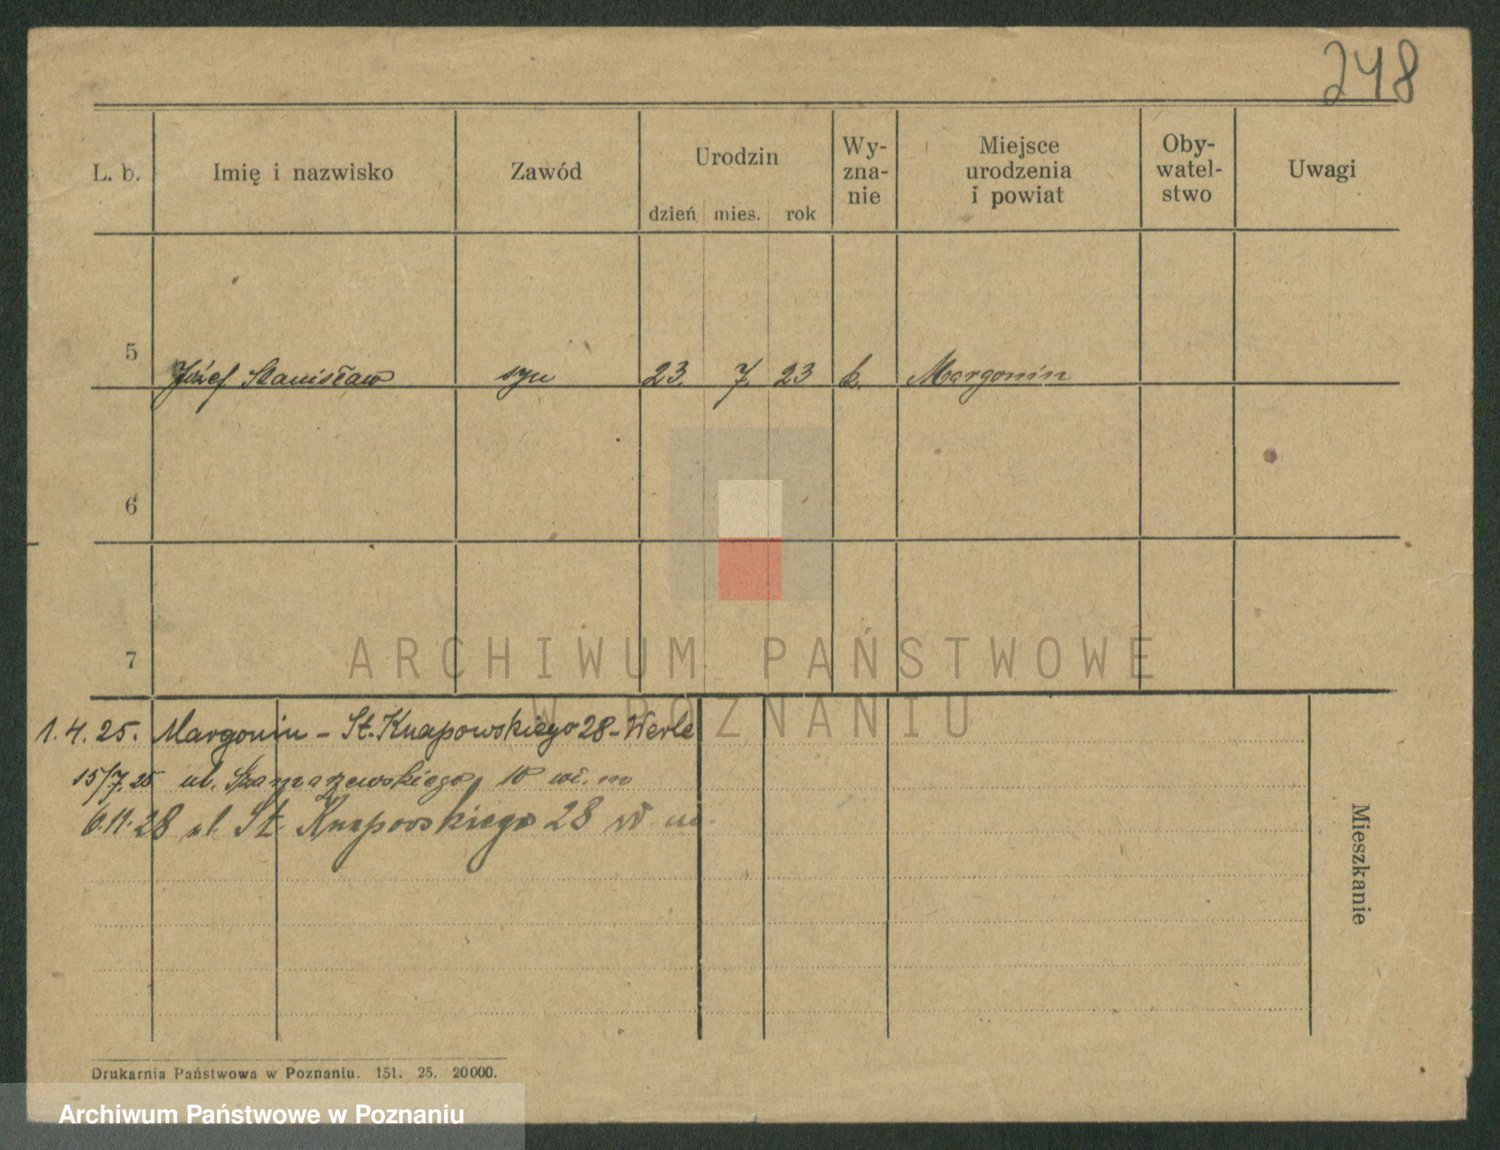 248
L. b. Imię i nazwisko Zawód Urodzin dzień mies. rok Wy-zna-nie Miejsce urodzenia i powiat Oby-watel-stwo Uwagi
5 Józef Stanisław syn 23. 7. 23 k. Margonin
6
7
ARCHIWUM PAŃSTWOWE
W POZNANIU
1.4.25. Margonin - St. Knapowskiego 28 - Werle
15/7.25 ul. Szamarzewskiego 10 wł. m
6.11.28 ul. St Knapowskiego 28 w m.
Mieszkanie
Drukarnia Państwowa w Poznaniu. 151. 25. 20000.
Archiwum Państwowe w Poznaniu